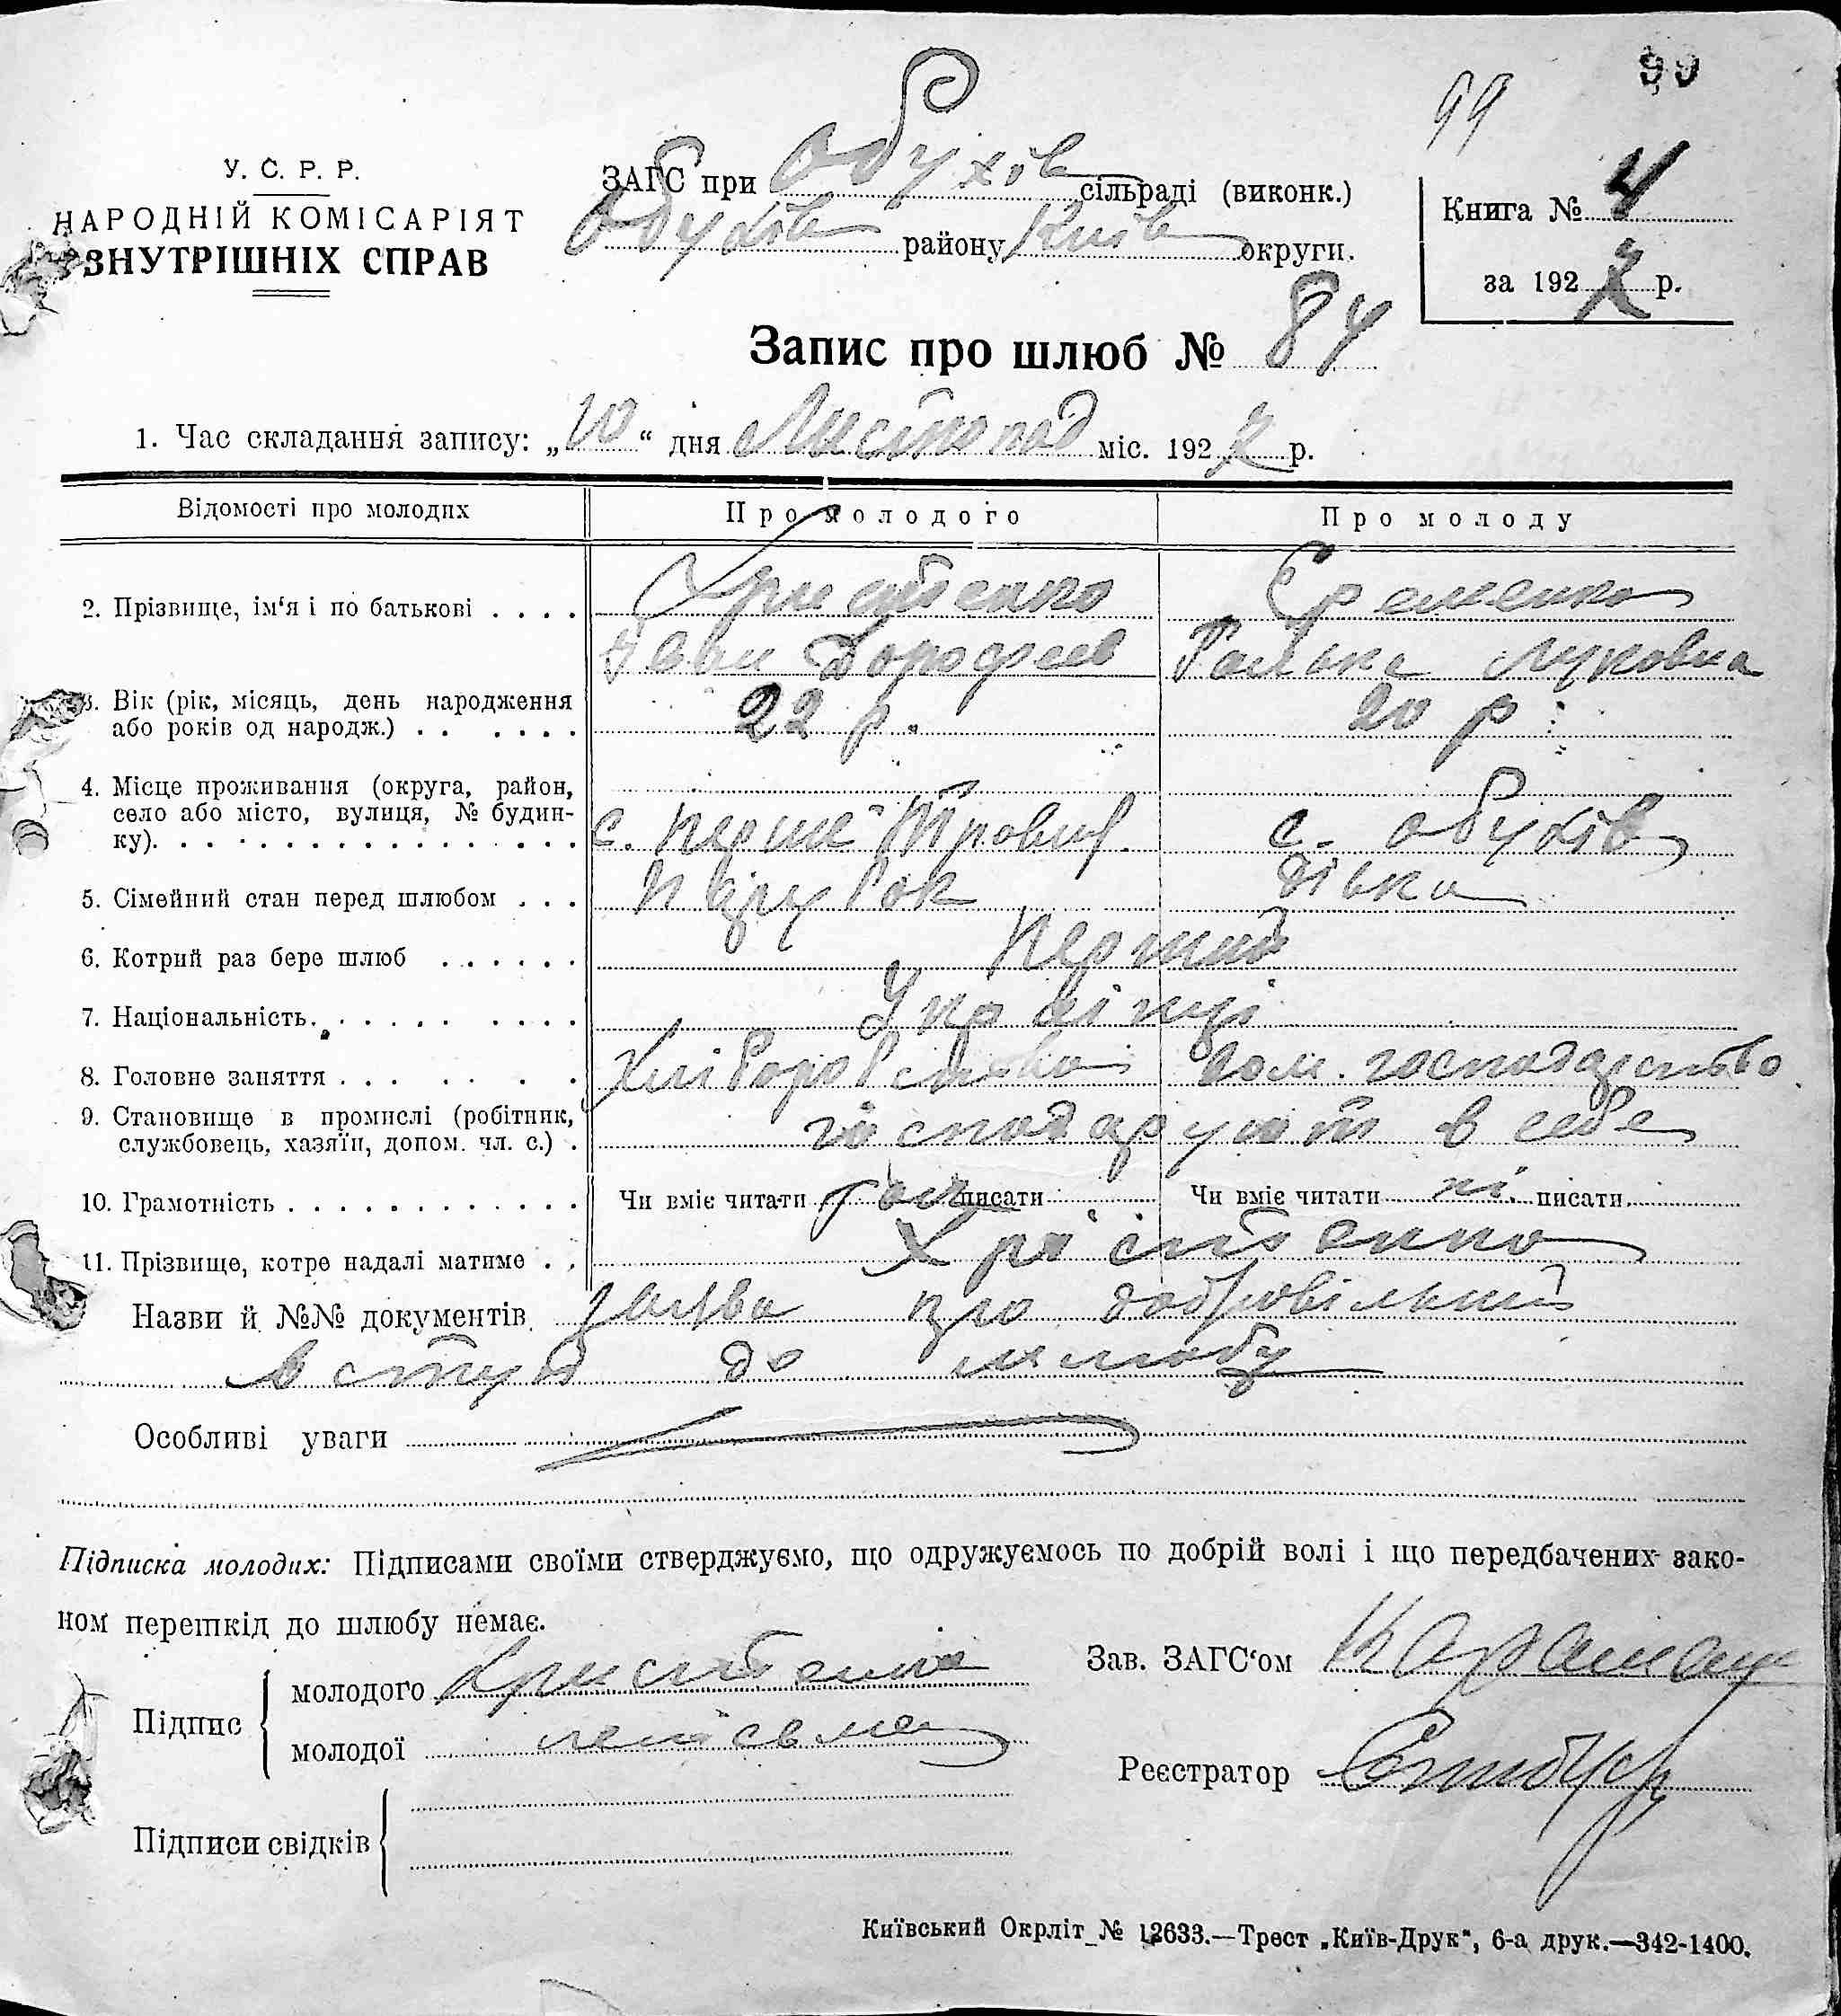 99
99
У. С. Р. Р.
НАРОДНІЙ КОМІСАРІЯТ
ВНУТРІШНІХ СПРАВ
ЗАГС при Обухів сільраді (виконк.)
Обухів району Київ округи.
Книга № 4
за 1927 р.
Запис про шлюб № 84
1. Час складання запису: „10“ дня Листопад міс. 1927 р.
Відомості про молодих
Про молодого
Про молоду
2. Прізвище, ім‘я і по батькові . . . .
Христенко
Еременко
Іван Дорофеев
Галька Луковна
3. Вік (рік, місяць, день народження
або років од народж.) . . . . . .
22 р.
20 р.
4. Місце проживання (округа, район,
село або місто, вулиця, № будин-
ку). . . . . . . . . . . . . . . .
с. Перше
с. Обухів
5. Сімейний стан перед шлюбом . . .
Парубок
дівка
6. Котрий раз бере шлюб . . . . . .
Перший
7. Національність. . . . . . . . . . .
Українці
8. Головне заняття . . . . . . .
Хліборобство
дом. господарство
9. Становище в промислі (робітник,
службовець, хазяїн, допом. чл. с.) .
господарують в себе
10. Грамотність . . . . . . . . . . . .
Чи вміє читати писати
Чи вміє читати ні. писати
11. Прізвище, котре надалі матиме . .
Христенко
Назви й №№ документів заява про добровільний
вступ до шлюбу
Особливі уваги
Підписка молодих: Підписами своїми стверджуємо, що одружуємось по добрій волі і що передбачених зако-
ном перешкід до шлюбу немає.
Підпис
молодого Христенко
молодої неписьмена
Зав. ЗАГС‘ом
Реєстратор
Підписи свідків
Київський Окрліт № 12633.—Трест „Київ-Друк“, 6-а друк.—342-1400.